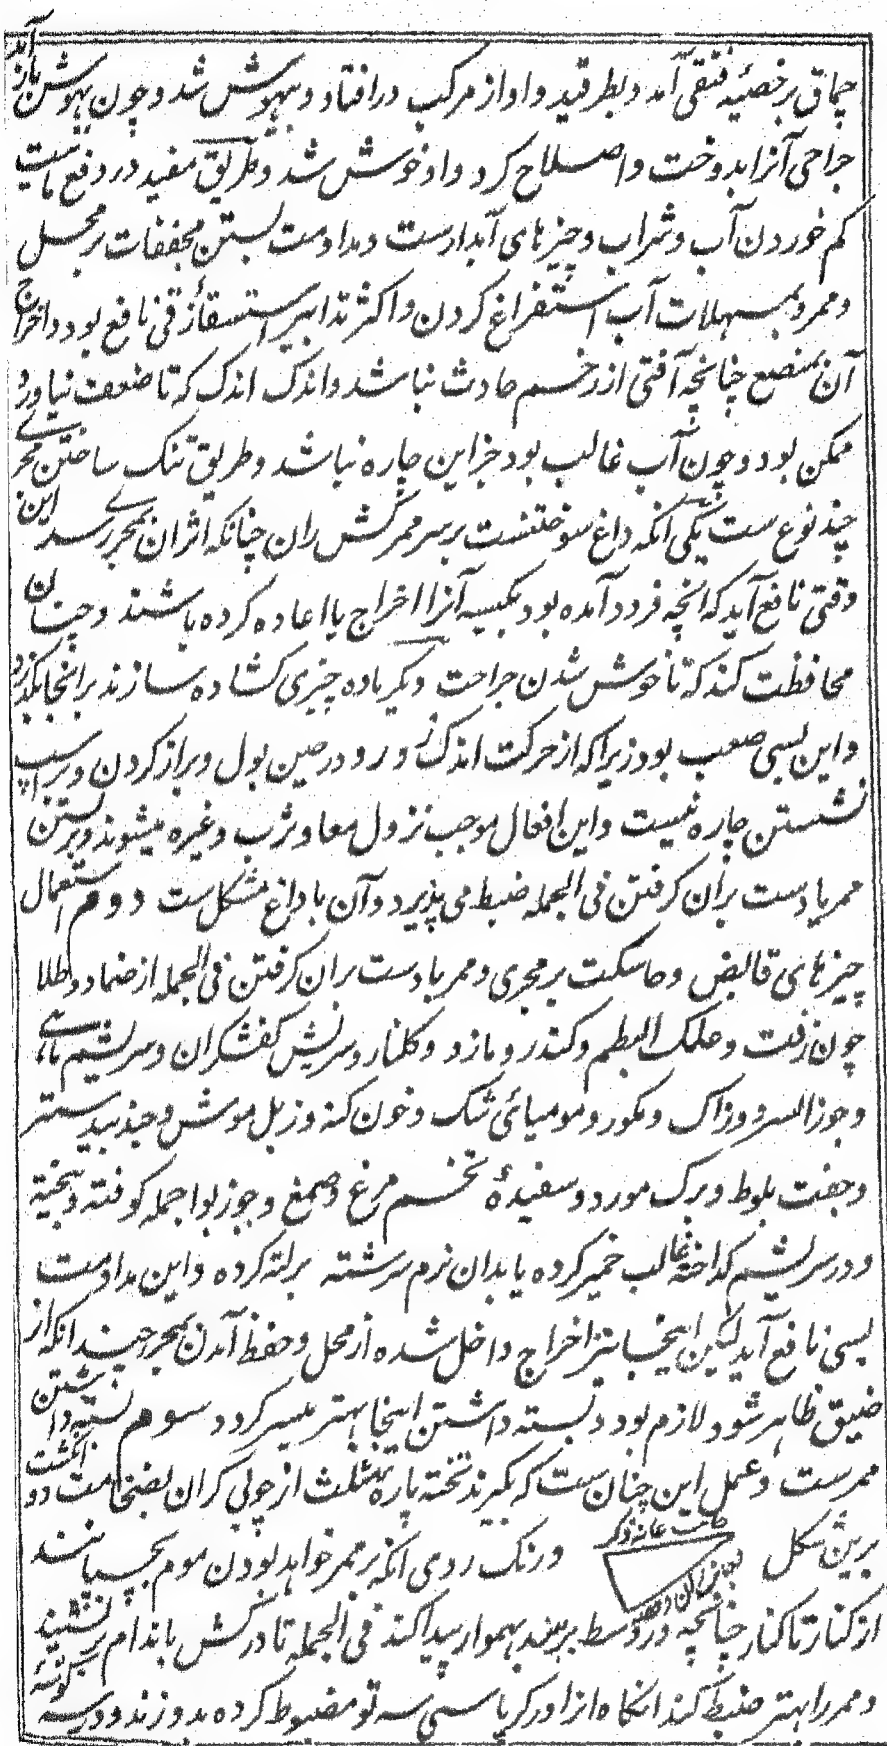 چماق بر خصیهٔ فتقی آمد و بطرقید و او از مرکب در افتاد و بیهوش شد و چون بهوش باز آمد
جراحی آنرا بدوخت و اصلاح کرد و او خوش شد و طریق مفید در دفع مائیت
کم خوردن آب و شراب و چیزهای آبدارست و مداومت بستن مجففات بر محل
و ممر و بمسهلات آب استفراغ کردن و اکثر تدابیر استسقاء زقی نافع بود و اخراج
آن بمبضع چنانچه آفتی از زخم حادث نباشد و اندک اندک که تا ضعف نیاورد
ممکن بود و چون آب غالب بود جز این چاره نباشد و طریق تنک ساختن مجرے
چند نوع ست یکی انکه داغ سوختنست بر سر ممر کش ران چنانکه اثر ان بمجرے رسد این
وقتی نافع آید که انچه فرود آمده بود بکیسه آنرا اخراج یا اعاده کرده باشند و چنان
محافظت کند که تا خوش شدن جراحت دیگر ماده چیزی کشاده سازند بر انجا نگذرد
و این بسی صعب بود زیرا که از حرکت اندک و زور و در حین بول و براز کردن و بر اسپ
نشستن چاره نیست و این افعال موجب نزول معا و ثرب و غیره میشوند و بر بستن
ممر یا دست بران گرفتن فی الجمله ضبط می پذیرد و آن با داغ مشکل ست دوم استعمال
چیزهای قابض و ماسکت بر مجری و ممر یا دست بران گرفتن فی الجمله از ضماد و طلا
چون زفت و علک البطم و کندر و مازو و گلنار و سریش کفشگران و سریشم ماهے
و جوز السرو و زاک و مومیائی تنک و خون کنه و زبل موش و جندبیدستر
و جفت بلوط و برک مورد و سفیدهٔ تخم مرغ و صمغ و جوزبوا جمله کوفته و بیخته
و در سریشم گداخته غالب خمیر کرده یا بدان نرم سرشته بر لته کرده و این مداومت
بسی نافع آید لیکن اینجا نیز اخراج داخل شده از محل و حفظ آمدن بمجر چندانکه از
ضیق ظاهر شود لازم بود و بسته داشتن اینجا بهتر میسر گردد سوم بسته داشتن
ممرست و عمل این چنان ست که بگیرند تخته پاره مثلث از چوبی گران بضخامت دو انگشت
برین شکل جانب عانه و ذکر و رنک ردی انکه بر ممر خواهد بودن موم بچسپانند
از کنار تا کنار چنانچه در وسط بر بلند بهموار پیدا کند فی الجمله تا در کش باندام تر نشیند
و ممر را بهتر ضبط کند انگاه انرا در کرپاسی سه تو مضبوط کرده بدوزند و در سه گوشهٔ